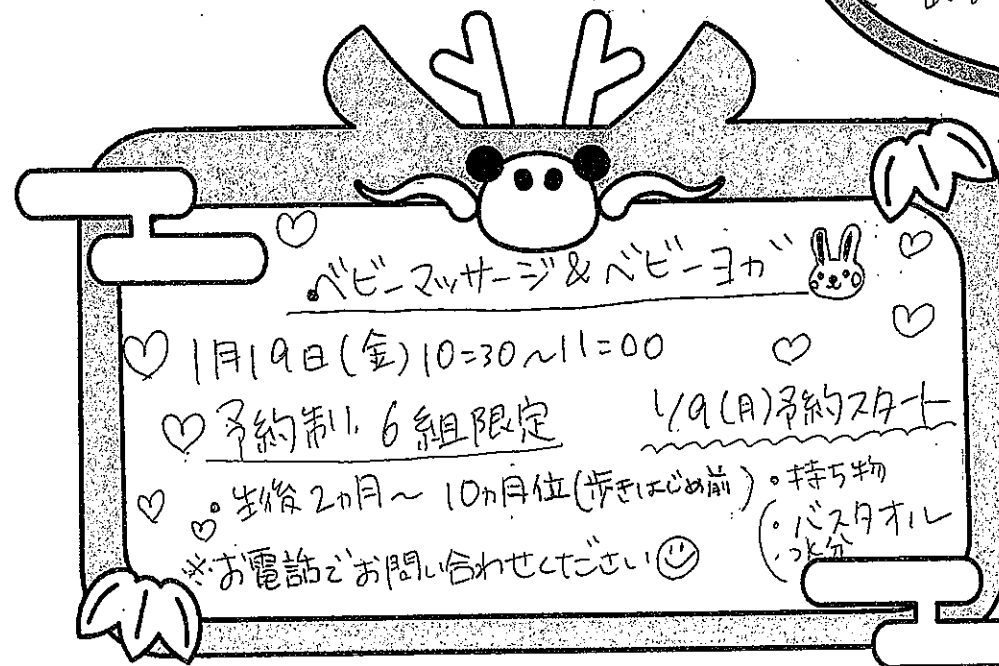 ベビーマッサージ&ベビーヨガ
1月19日(金)10:30～11:00
予約制、6組限定
1/9(月)予約スタート
・生後2ヵ月～10ヵ月位(歩きはじめ前)
・持ち物
・バスタオル
・水分
※お電話でお問い合わせください